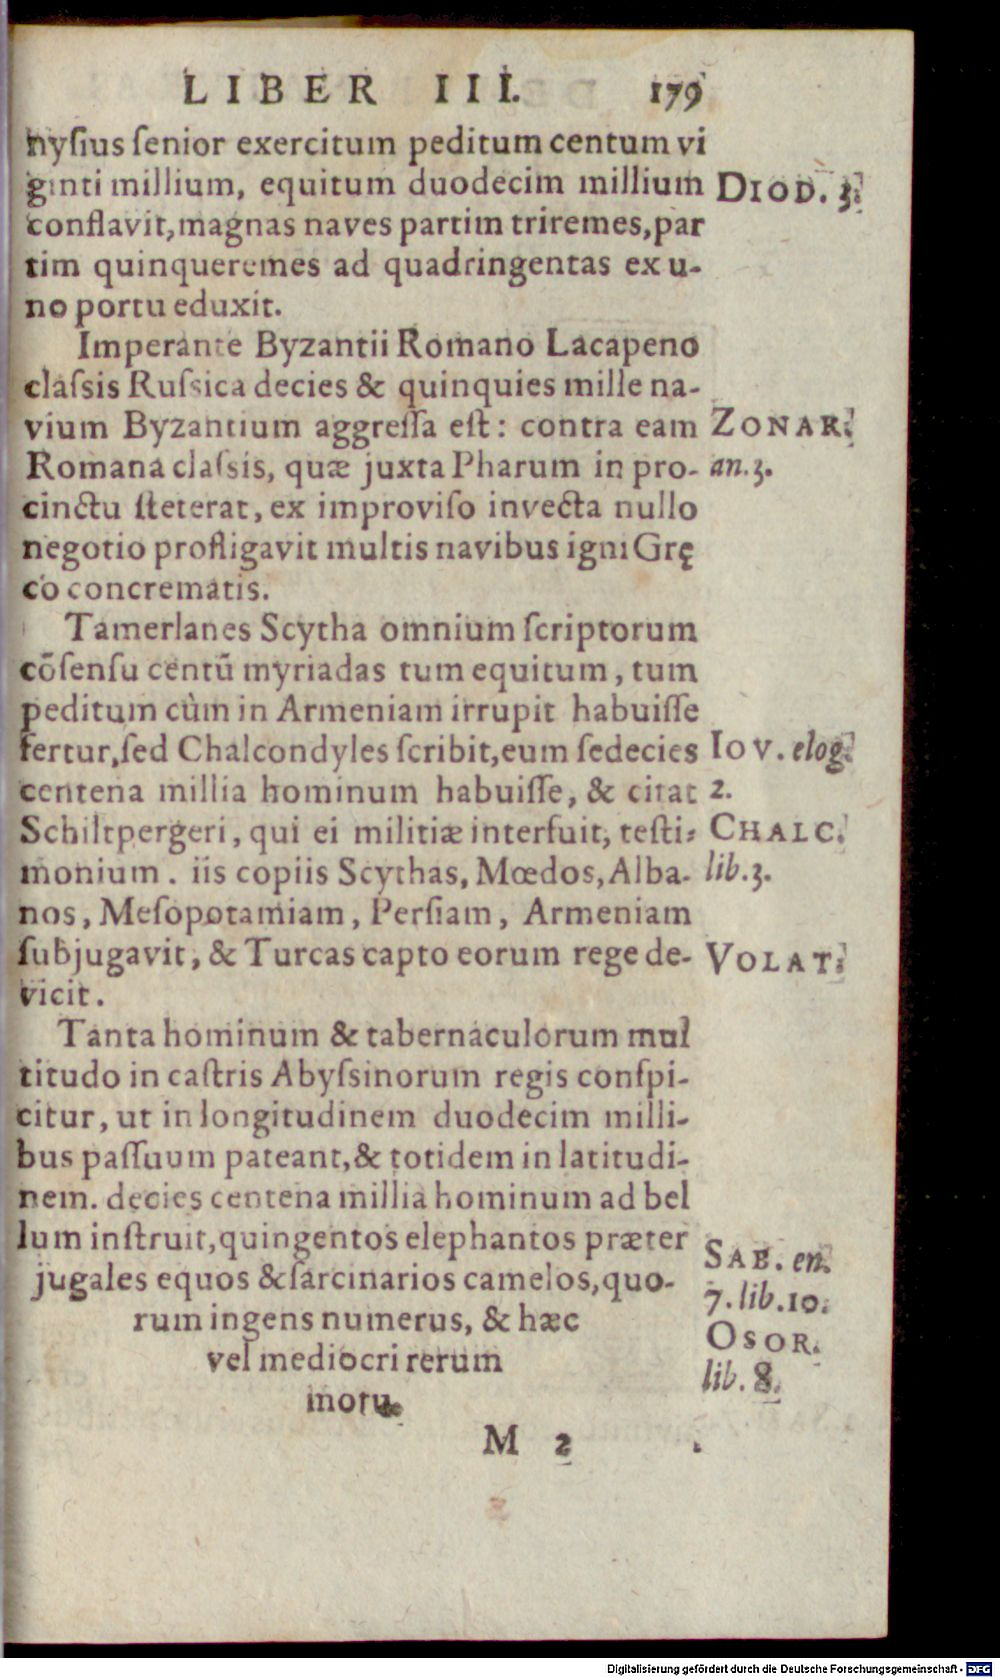 LIBER III. 179
nyſius ſenior exercitum peditum centum vi
ginti millium, equitum duodecim millium
conflavit, magnas naves partim triremes, par
tim quinqueremes ad quadringentas ex u-
no portu eduxit.
DIOD. 3.
Imperante Byzantii Romano Lacapeno
claſsis Ruſsica decies & quinquies mille na-
vium Byzantium aggreſſa eſt: contra eam
Romana claſsis, quæ juxta Pharum in pro-
cinctu ſteterat, ex improviſo invecta nullo
negotio profligavit multis navibus igni Grę
co concrematis.
ZONAR.
an. 3.
Tamerlanes Scytha omnium ſcriptorum
cōſenſu centū myriadas tum equitum, tum
peditum cùm in Armeniam irrupit habuiſſe
fertur, ſed Chalcondyles ſcribit, eum ſedecies
centena millia hominum habuiſſe, & citat
Schiltpergeri, qui ei militiæ interfuit, teſti-
monium. iis copiis Scythas, Mœdos, Alba-
nos, Meſopotamiam, Perſiam, Armeniam
ſubjugavit, & Turcas capto eorum rege de-
vicit.
IOV. elog.
2.
CHALC.
lib. 3.
VOLAT.
Tanta hominum & tabernaculorum mul
titudo in caſtris Abyſsinorum regis conſpi-
citur, ut in longitudinem duodecim milli-
bus paſſuum pateant, & totidem in latitudi-
nem. decies centena millia hominum ad bel
lum inſtruit, quingentos elephantos præter
jugales equos & ſarcinarios camelos, quo-
rum ingens numerus, & hæc
vel mediocri rerum
motu.
SAB. en.
7. lib. 10.
OSOR.
lib. 8.
M 2
Digitalisierung gefördert durch die Deutsche Forschungsgemeinschaft - DFG